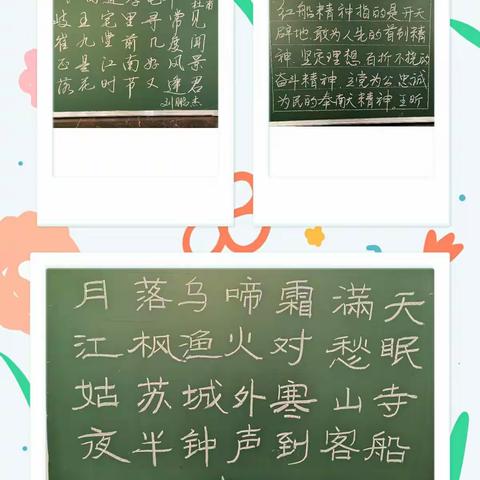 杜甫
岐王宅里寻常见
崔九堂前几度闻
正是江南好风景
落花时节又逢君
刘鹏杰
红船精神指的是开天
辟地,敢为人先的首创精
神,坚定理想,百折不挠的
奋斗精神,立党为公,忠诚
为民的奉献精神。王昕
月落乌啼霜满天
江枫渔火对愁眠
姑苏城外寒山寺
夜半钟声到客船